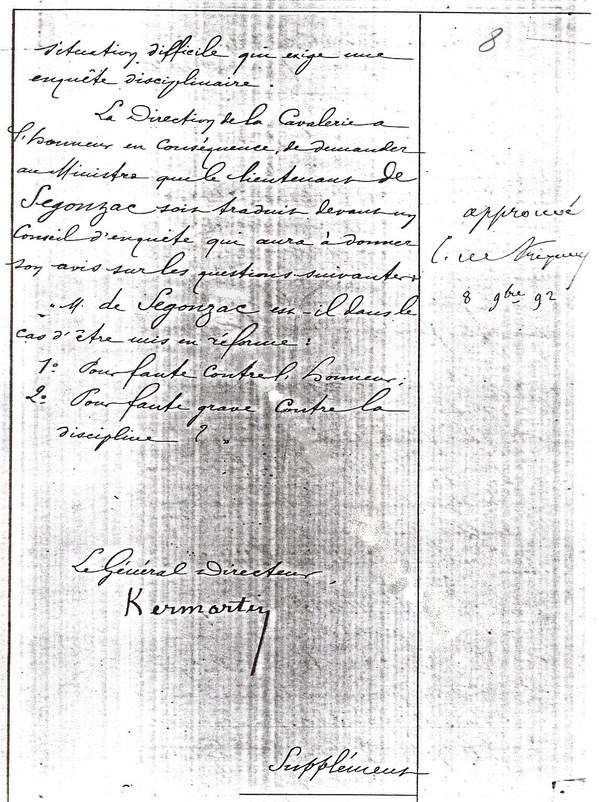 situation difficile qui exige une
enquête disciplinaire.
La Direction de la Cavalerie a
l'honneur en conséquence, de demander
au Ministre que le lieutenant de
Segonzac soit traduit devant un
Conseil d'enquête qui aura à donner
son avis sur les questions suivantes :
"M. de Segonzac est-il dans le
cas d'être mis en réforme :
1º Pour faute contre l'honneur ;
2º Pour faute grave contre la
discipline ? "
Le Général Directeur,
Kermartin
Supplément
8
approuvé
C. de
8 9bre 92